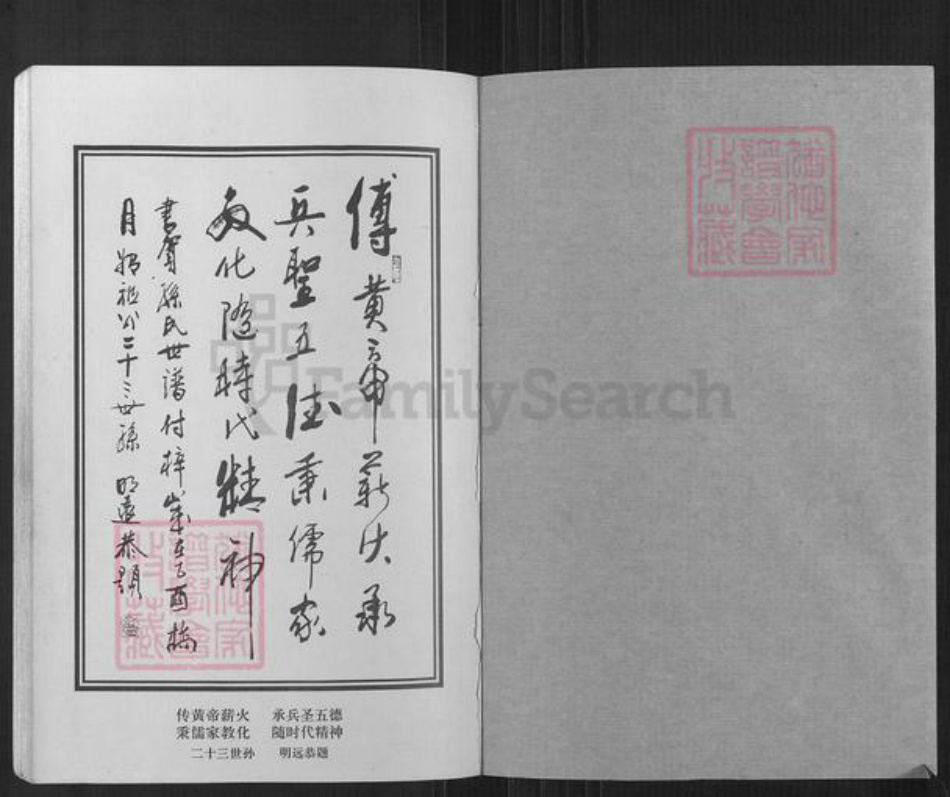 傳黄帝薪火承
兵聖五德秉儒家
教化隨時代精神
書賀孫氏世譜付梓歲在乙酉橘
月始祖公二十三世孫 明遠恭題
传黄帝薪火 承兵圣五德
秉儒家教化 随时代精神
二十三世孙 明远恭题
譜學會
收藏
FamilySearch